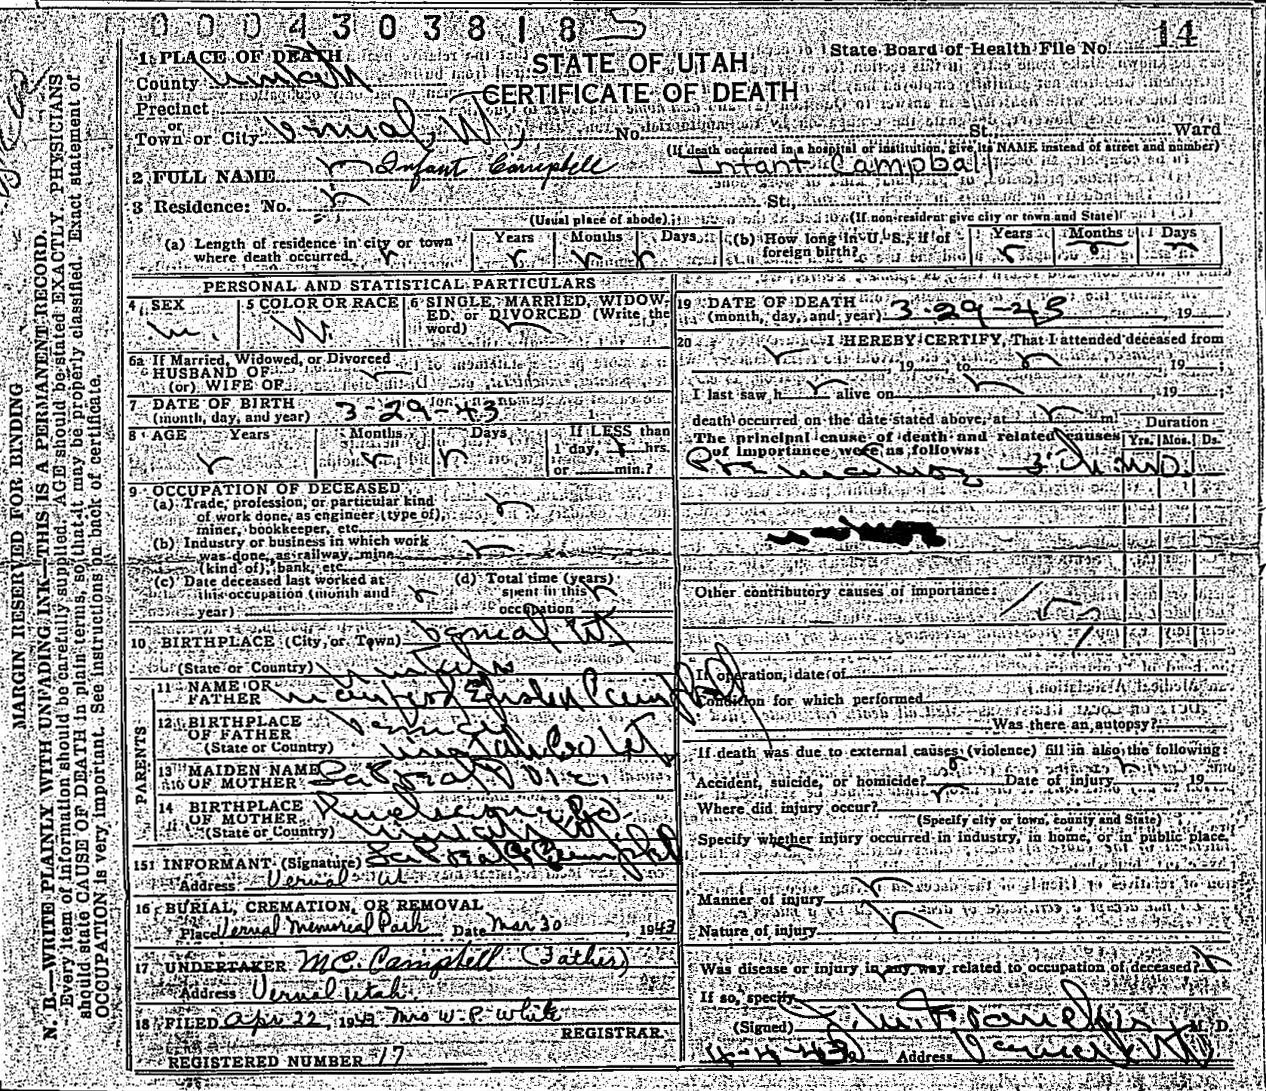 0004303818 5
14
State Board of Health File No.
STATE OF UTAH
CERTIFICATE OF DEATH
1 PLACE OF DEATH
County Uintah
Precinct
or
Town or City Vernal, Ut, No. St. Ward
(If death occurred in a hospital or institution, give its NAME instead of street and number)
2 FULL NAME Infant Campbell Infant Campball
3 Residence: No. St.,
(Usual place of abode) (If non-resident give city or town and State)
(a) Length of residence in city or town where death occurred. Years Months Days (b) How long in U. S., if of foreign birth? Years Months Days
PERSONAL AND STATISTICAL PARTICULARS
4 SEX m. 5 COLOR OR RACE W. 6 SINGLE, MARRIED, WIDOWED. or DIVORCED (Write the word)
6a If Married, Widowed, or Divorced
HUSBAND OF
(or) WIFE OF
7 DATE OF BIRTH
(month, day, and year) 3-29-43
8 AGE Years Months Days If LESS than
1 day, hrs.
or min.?
9 OCCUPATION OF DECEASED
(a) Trade, profession, or particular kind
of work done, as engineer (type of),
miner, bookkeeper, etc.
(b) Industry or business in which work
was done, as railway, mine
(kind of), bank, etc.
(c) Date deceased last worked at
this occupation (month and
year)
(d) Total time (years)
spent in this
occupation
10 BIRTHPLACE (City or Town) Vernal Ut
(State or Country) Uintah
PARENTS
11 NAME OF
FATHER Campbell
12 BIRTHPLACE
OF FATHER Vernal
(State or Country) Uintah Co Ut
13 MAIDEN NAME
OF MOTHER
14 BIRTHPLACE
OF MOTHER
(State or Country)
15 INFORMANT (Signature) Campbell
Address Vernal Ut
16 BURIAL, CREMATION, OR REMOVAL
Place Vernal Memorial Park Date Mar 30, 1943
17 UNDERTAKER M.E. Campbell (Father)
Address Vernal Utah.
18 FILED Apr 22, 1943 Mrs W. P. White
REGISTRAR
REGISTERED NUMBER 17
19 DATE OF DEATH
(month, day, and year) 3-29-43, 19
20 I HEREBY CERTIFY, That I attended deceased from
, 19 , to , 19 ;
I last saw h alive on , 19 ;
death occurred on the date stated above, at m.
The principal cause of death and related causes
of importance were as follows:
Duration
Yrs. Mos. Ds.
Prematurity
Other contributory causes of importance:
If operation, date of
Condition for which performed
Was there an autopsy?
If death was due to external causes (violence) fill in also the following:
Accident, suicide, or homicide? Date of injury 19
Where did injury occur?
(Specify city or town, county and State)
Specify whether injury occurred in industry, in home, or in public place.
Manner of injury
Nature of injury
Was disease or injury in any way related to occupation of deceased?
If so, specify
(Signed) M. D.
4-4-43 Address Vernal Ut
MARGIN RESERVED FOR BINDING
N. B.—WRITE PLAINLY WITH UNFADING INK—THIS IS A PERMANENT RECORD.
Every item of information should be carefully supplied. AGE should be stated EXACTLY. PHYSICIANS
should state CAUSE OF DEATH in plain terms, so that it may be properly classified. Exact statement of
OCCUPATION is very important. See instructions on back of certificate.